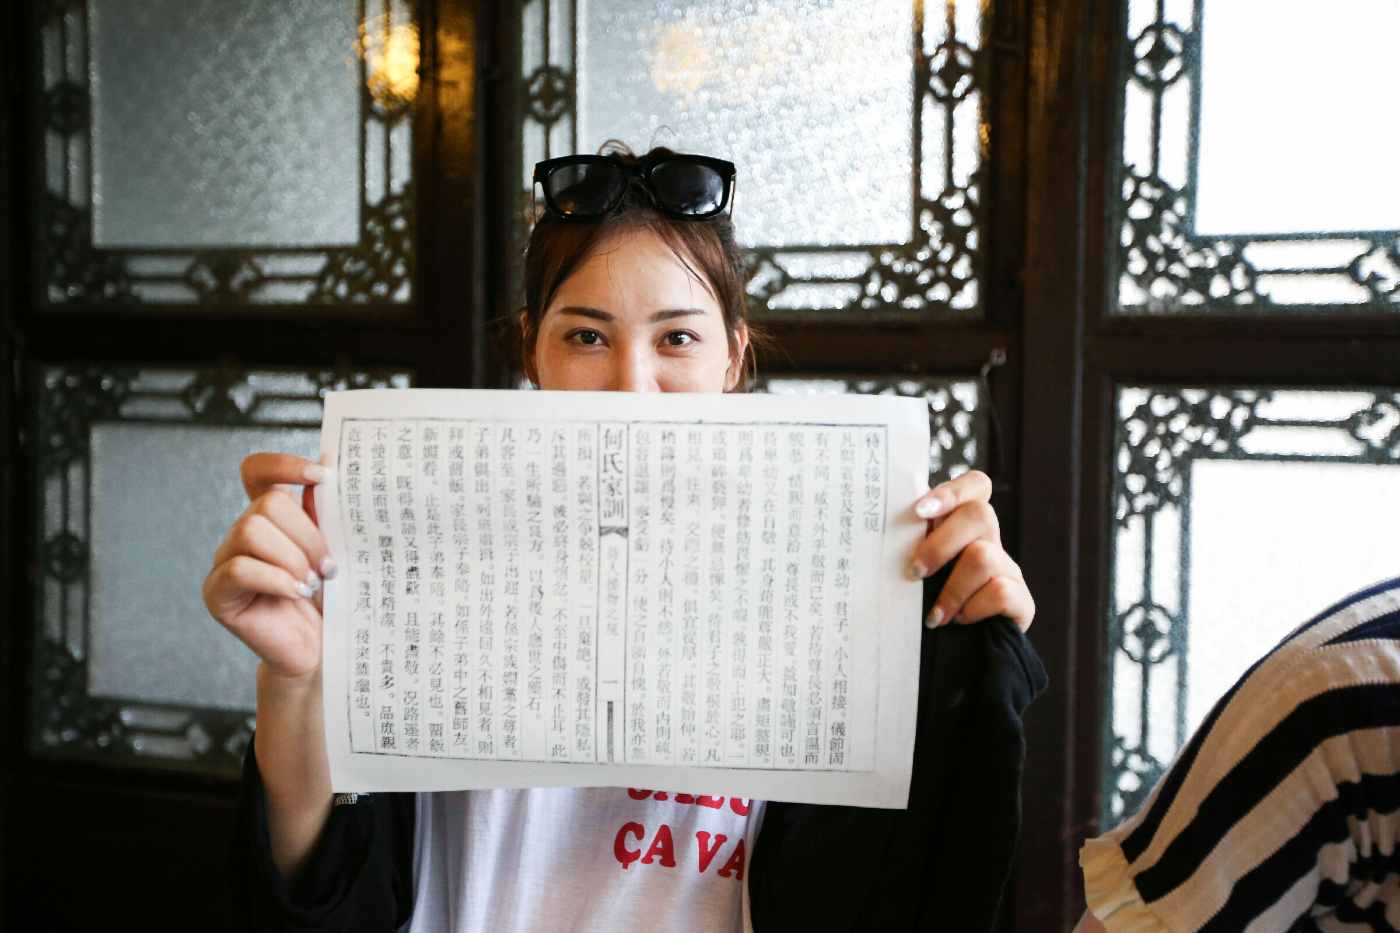 待人接物之規
凡與賓客及尊長。卑幼。君子。小人相接。儀節固
有不同。咸不外乎敬而已矣。若待尊長必須言溫而
貌恭。情親而意洽。尊長或不我愛。益加敬謹可也。
待卑幼又在自敬。其身苟能尊嚴正大。肅矩整規。
則爲卑幼者修飭畏懼之不暇。孰得而上犯之耶。一
或頑碎褻狎。便無忌憚矣。待君子之敬根於心。凡
相見。往來。交際之禮。俱宜從厚。其敬始伸。若
稍薄則爲慢矣。待小人則不然。外若敬而内則疏。
包容退讓。寧受虧一分。使之自愧。於我亦無
何氏家訓 待人接物之規 一
所損。若與之爭競校量。一旦棄絶。或發其隱私。
斥其過惡。彼必終身懷忿。不至中傷而不止耳。此
乃一生所驗之良方。以爲後人應世之藥石。
凡客至。家長或宗子出迎。若係宗族婣黨之尊者。
子弟俱出。列班還揖。如出外遠回久不相見者。則
拜或留飯。家長宗子奉陪。如係子弟中之舊師友。
新婣眷。止是此子弟奉陪。其餘不必見也。留飯
之意。既得盡語又得盡歡。且能盡敬。況路遙者
不使受餒而還。饌貴快便精潔。不貴多。品庶親
近教益常可往來。若一豐厚。後來難繼也。
ÇA VA